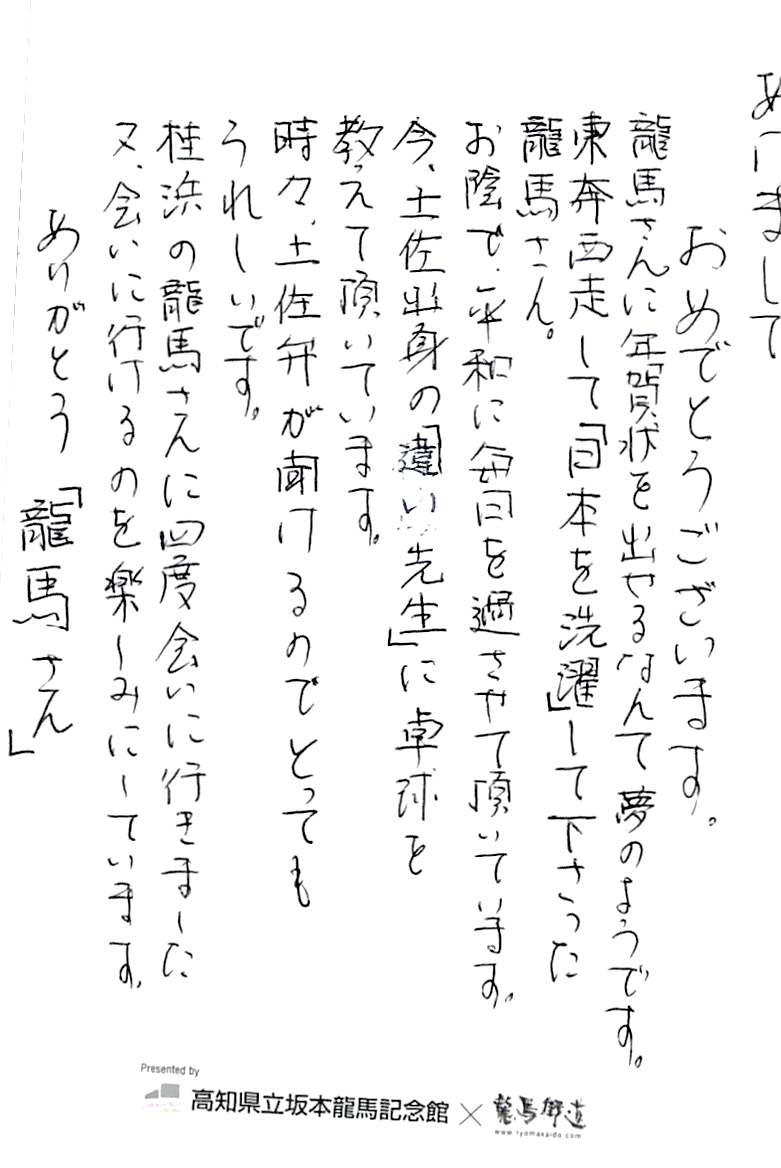 あけまして
おめでとうございます。
龍馬さんに年賀状を出せるなんて夢のようです。
東奔西走して「日本を洗濯」して下さった
龍馬さん。
お陰で、平和に毎日を過させて頂いています。
今、土佐出身の「違い先生」に卓球を
教えて頂いています。
時々、土佐弁が聞けるのでとっても
うれしいです。
桂浜の龍馬さんに四度会いに行きました
又、会いに行けるのを楽しみにしています。
ありがとう「龍馬さん」
Presented by
高知県立坂本龍馬記念館×龍馬街道
www.ryomakaido.com